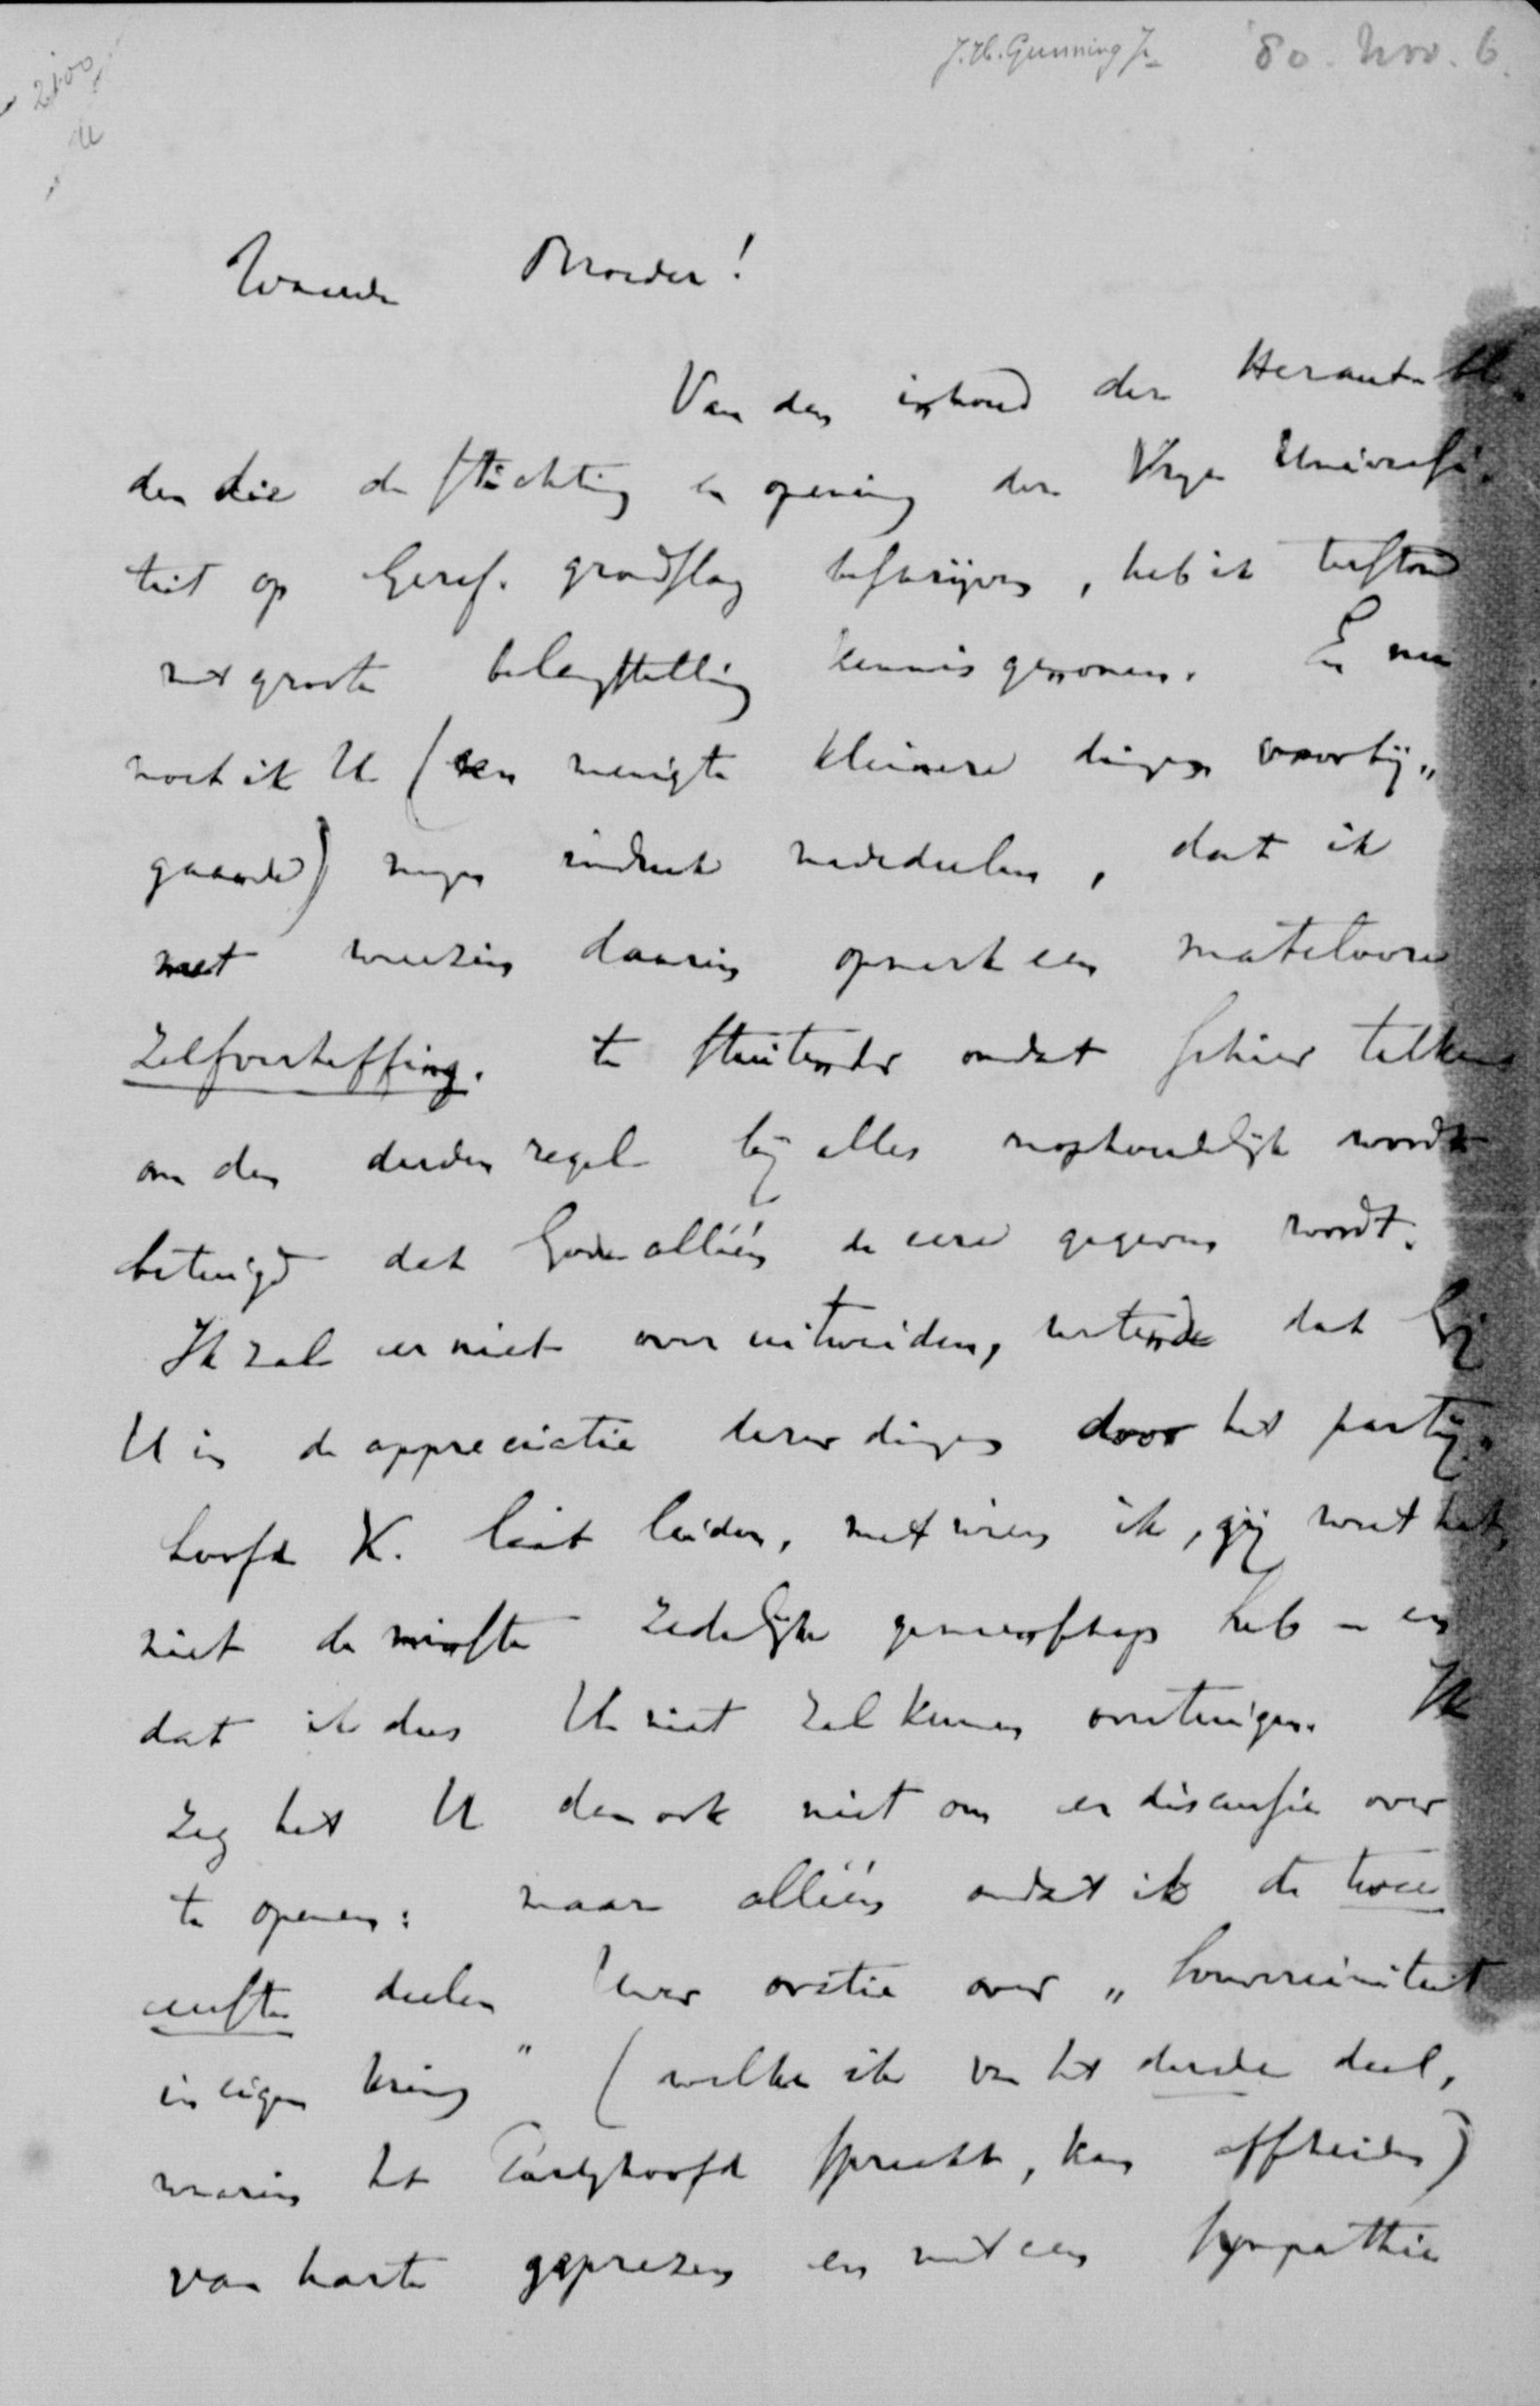 J.H. Gunning Jr '80. Nov. 6.
2100
Waarde Broeder!
Van den inhoud der Heraut-bla-
den die de stichting en opening der Vrije Universi-
teit op Geref. grondslag beschrijven, heb ik
met groote belangstelling kennis genomen. En nu
moet ik U (een menigte kleinere dingen voorbij-
gaande) mijn indruk mededeelen, dat ik
met weerzin daarin opmerk een mateloozen
zelfverheffing. te stuitender omdat schier telkens
om den derden regel bij alles nophoudelijk wordt
betuigd dat Gode alléén de eere gegeven wordt.
Ik zal er niet over uitweiden, wetende dat Gij
U in de appreciatie dezer dingen door het partij-
hoofd K. laat leiden, met wien ik, gij weet het,
niet de minste zedelijke gemeenschap heb - en
dat ik dus U niet zal kunnen overtuigen. Ik
zeg het U dan ook niet om er discussie over
te openen: maar alléén omdat ik de twee
eerste deelen Uwer oratie over „Souvereiniteit
in eigen kring" (welke ik van het derde deel,
waarin het Partijhoofd spreekt, kan afscheiden)
van harte geprezen en met een sympathie